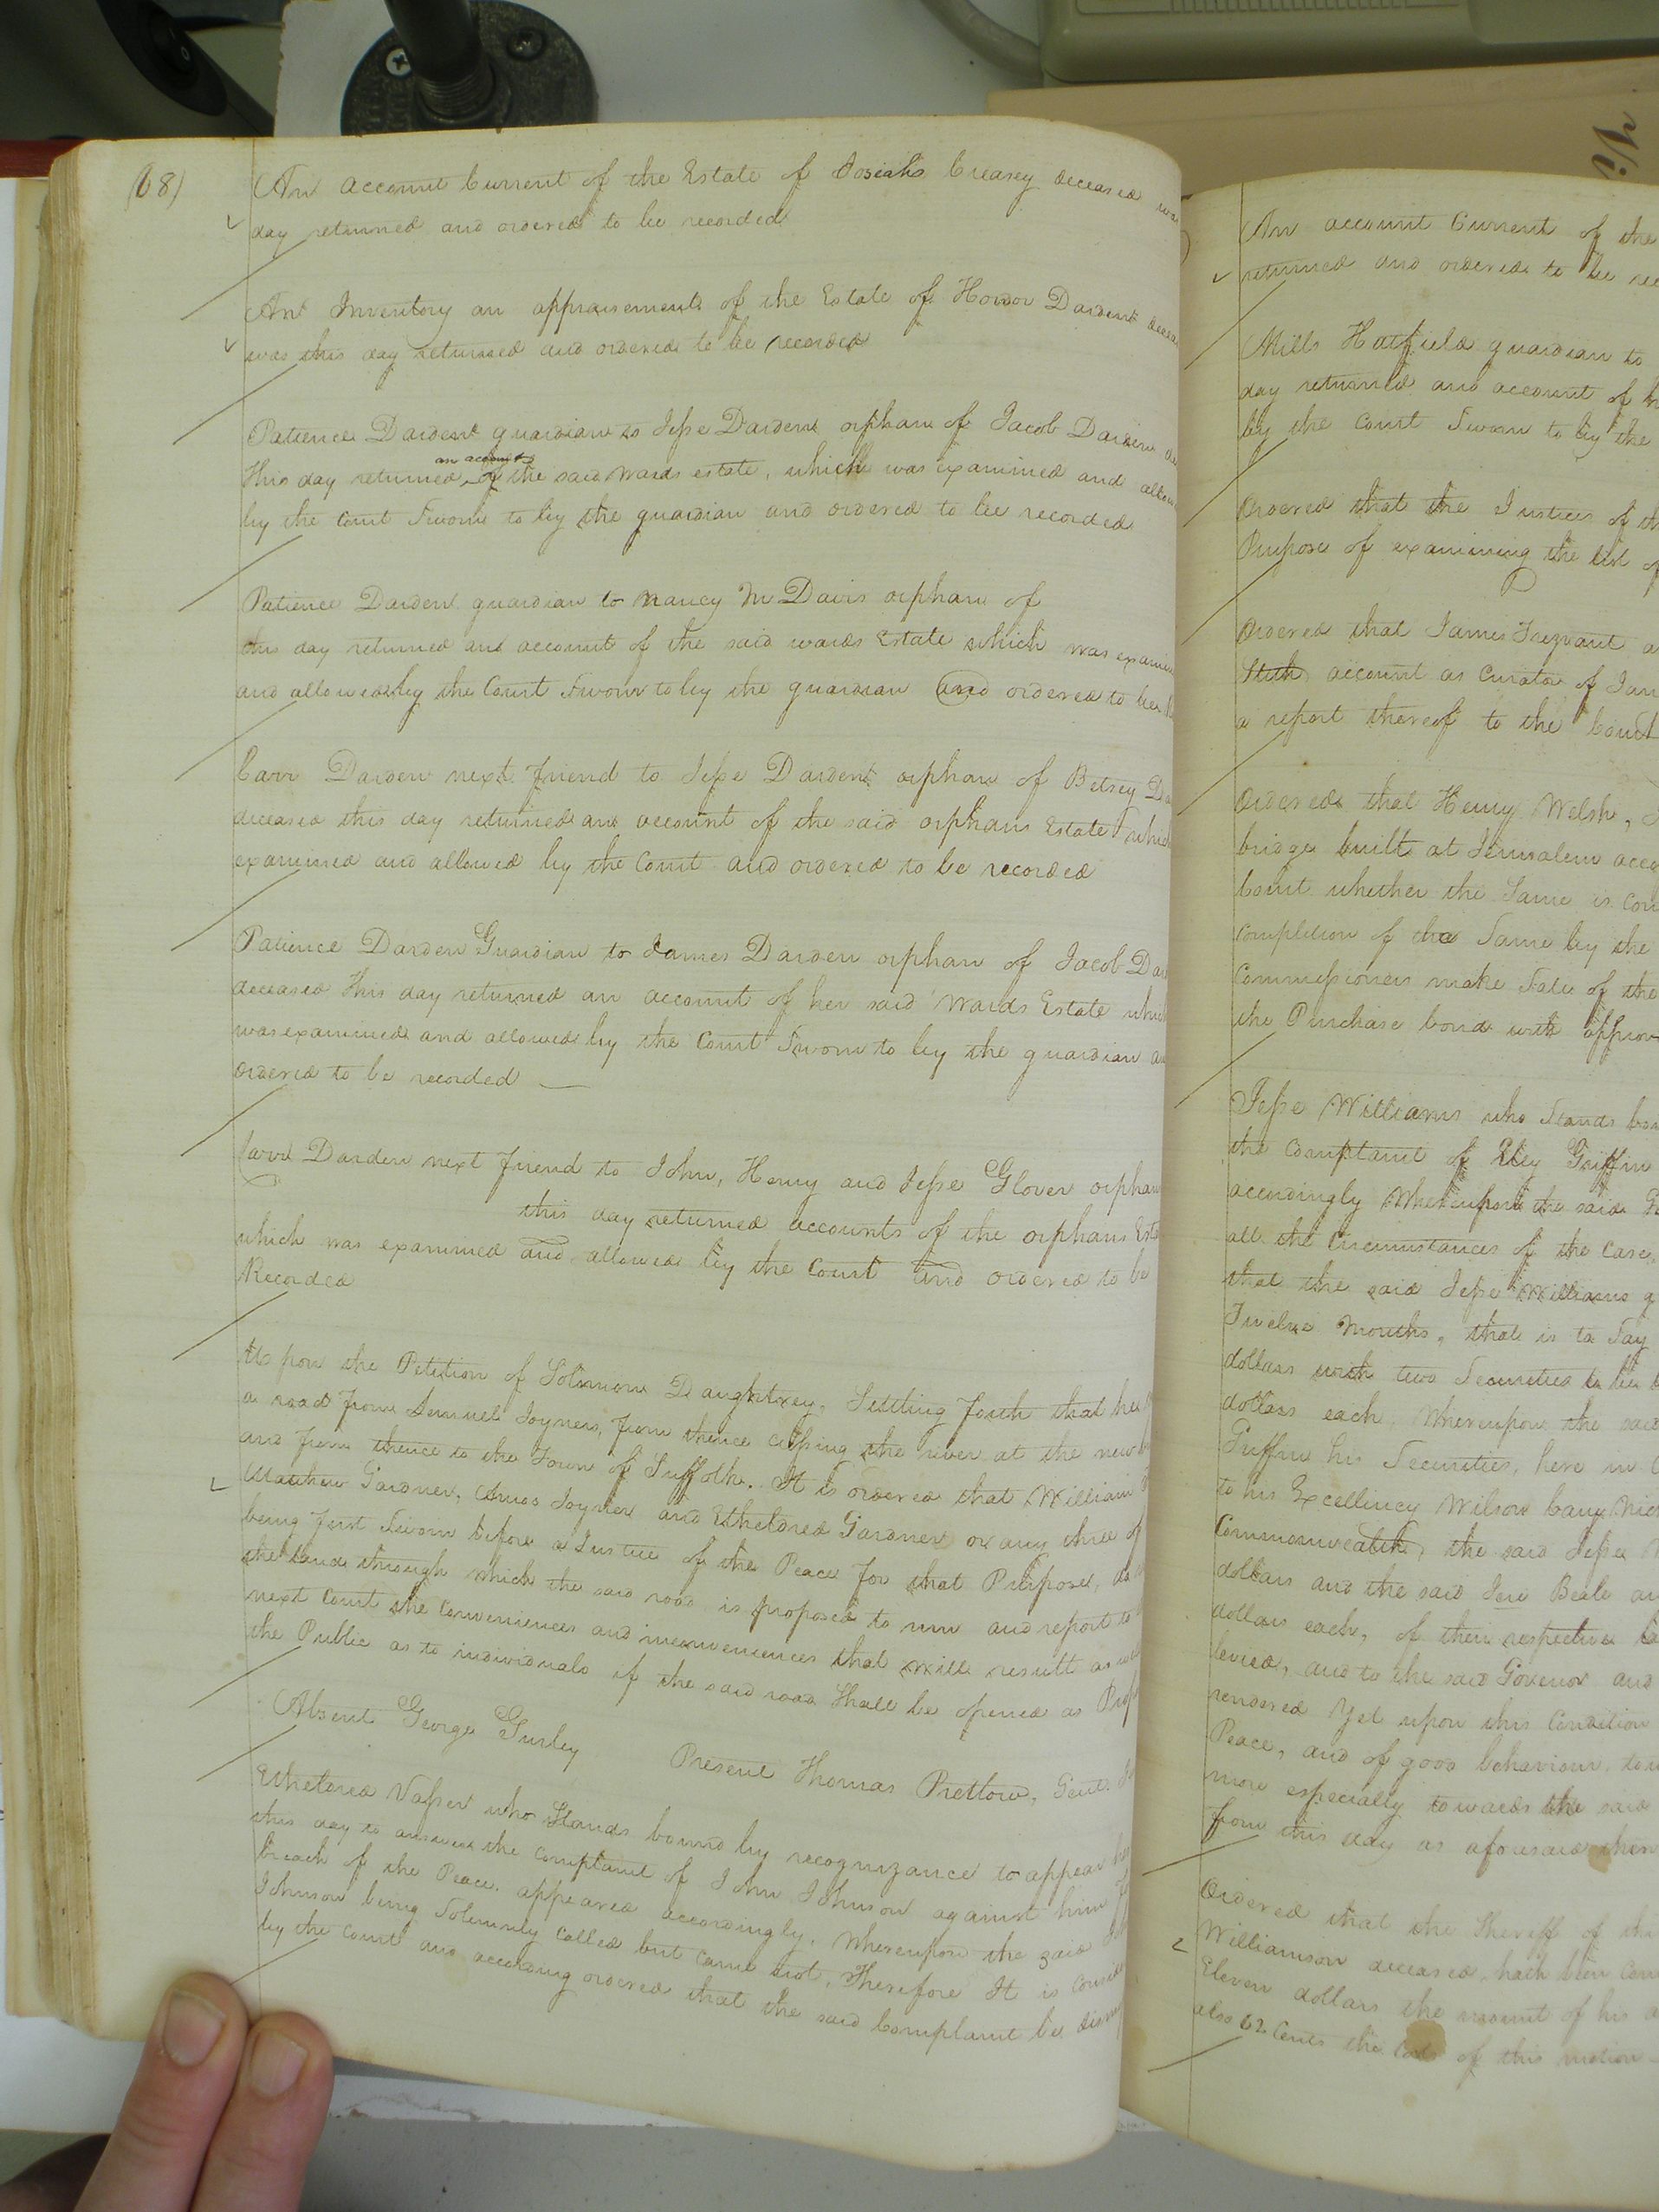 (68)
An account Current of the Estate of Josiah Creasey deceased was
day returned and ordered to be recorded
An Inventory an appraisement of the Estate of Honor Darden deceas
was this day returned and ordered to be recorded
Patience Darden guardian to Jesse Darden orphan of Jacob Darden
an account
this day returned of the said wards estate, which was examined and allow
by the Court Sworn to by the guardian and ordered to be recorded
Patience Darden guardian to Nancy M Davis orphan of
this day returned an account of the said wards Estate which was examin
and allowed by the Court Sworn to by the guardian and ordered to be
Carr Darden next friend to Jesse Darden orphan of Betsey Da
deceased this day returned an account of the said orphans Estate which
examined and allowed by the Court and ordered to be recorded
Patience Darden Guardian to James Darden orphan of Jacob Dar
deceased this day returned an account of her said Wards Estate which
was examined and allowed by the Court Sworn to by the guardian a
ordered to be recorded
Carr Darden next friend to John, Henry and Jesse Glover orphan
this day returned accounts of the orphans Esta
which was examined and allowed by the Court and ordered to be
Recorded
Upon the Petition of Solomon Daughtrey, Setting forth that he
a road from Lemuel Joyners, from thence crossing the river at the new
and from thence to the Town of Suffolk. It is ordered that William
Matthew Gardner, Amos Joyner and Etheldred Gardner or any three of
being first Sworn before a Justice of the Peace for that Purpose, do
the lands through which the said road is proposed to run and report to
next Court the Conveniences and inconveniences that will result as well
the Public as to individuals if the said road Shall be opened as Prop
Absent George Gurley Present Thomas Pretlow, Gent.
Etheldred Vasser who Stands bound by recognizance to appear her
this day to answer the complaint of John Johnson against him
breach of the Peace, appeared accordingly, Whereupon the said
Johnson being Solemnly Called but came not, Therefore It is Conside
by the Court and according ordered that the said Complaint be dism
An account Current of the
returned and ordered to be rec
Mills Hatfield guardian to
day returned and account of h
by the Court Sworn to by the
Ordered that the Justices of th
Purpose of examining the list of
Ordered that James Trezvant a
Stith account as Curator of Jam
a report thereof to the Court
Ordered that Henry Welsh,
bridge built at Jerusalem acco
Court whether the Same is Com
completion of the Same by the
Commissioners make Sale of the
the Purchase bond with approv
Jesse Williams who Stands bou
the Complaint of Ely Griffin
accordingly Whereupon the said
all the Circumstances of the Case,
that the said Jesse Williams g
Twelve Months, that is to Say
dollars with two Securities to be b
dollars each, Whereupon the said
Griffin his Securities, here in C
to his Excellency Wilson Cary Nich
Commonwealth, the said Jesse
dollars and the said Jere Beale an
dollars each, of their respective
levied, and to the said Govenor and
rendered Yet upon this Condition
Peace, and of good behaviour, tow
more especially towards the said
from this day as aforesaid then
Ordered that the Sheriff of th
Williamson deceased, hath been Com
Eleven dollars the amount of his a
also 62 Cents the Costs of this motion